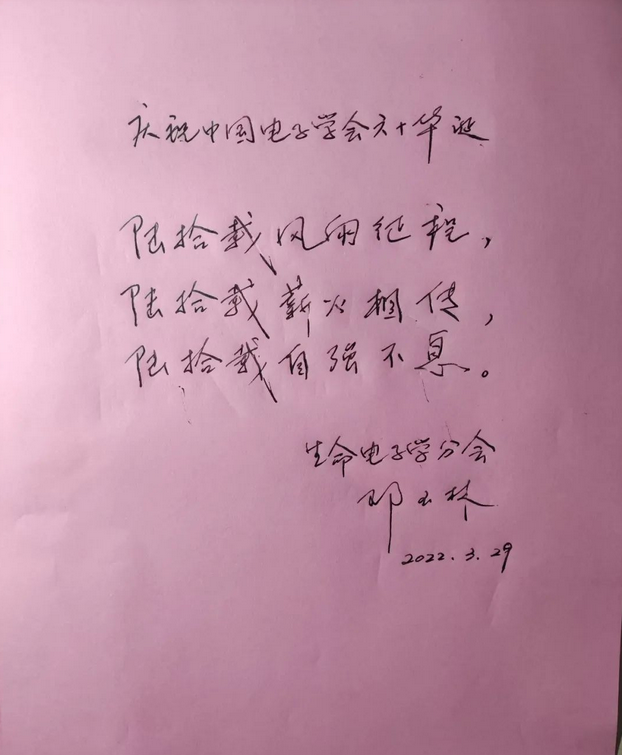 庆祝中国电子学会六十华诞
陆拾载风雨征程，
陆拾载薪火相传，
陆拾载自强不息。
生命电子学分会
邓玉林
2022.3.29